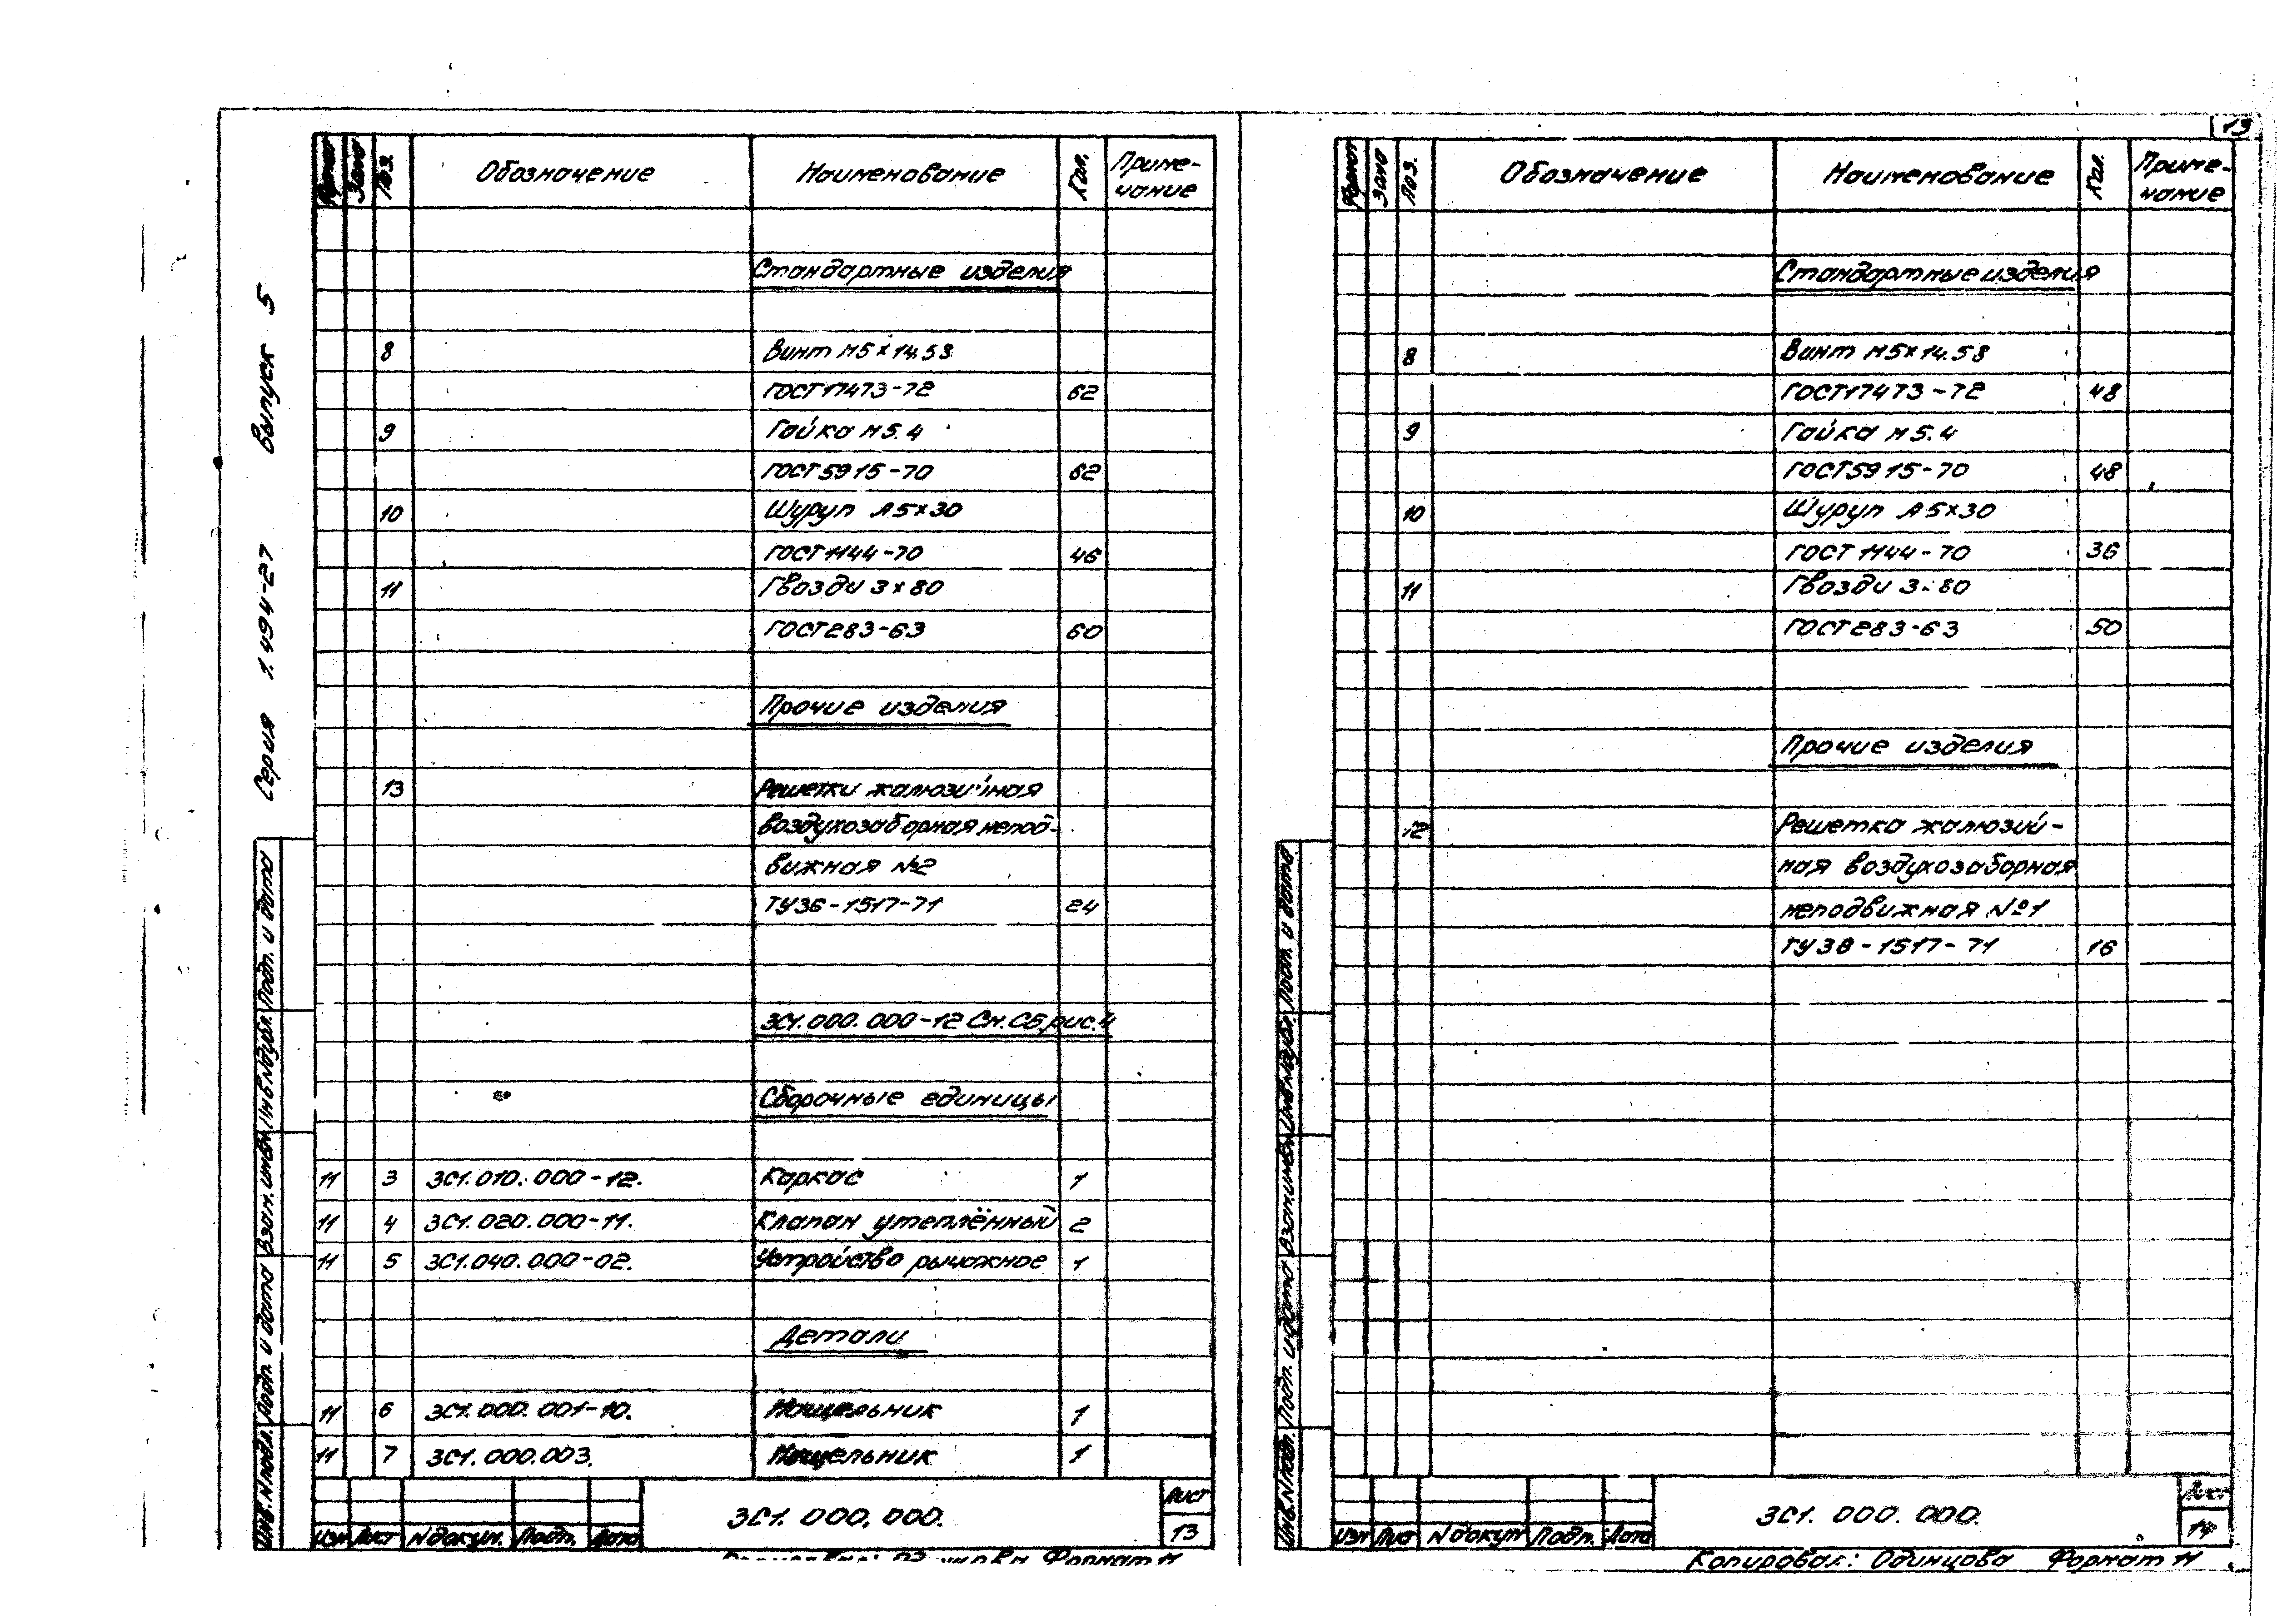 13
Серия 1.494-27 Выпуск 5
Формат Зона Поз. Обозначение Наименование Кол. Приме-
чание
Стандартные изделия
8 Винт М5×14.58
ГОСТ17473-72 62
9 Гайка М5.4
ГОСТ5915-70 62
10 Шуруп А5×30
ГОСТ1144-70 46
11 Гвозди 3×80
ГОСТ283-63 60
Прочие изделия
13 Решетки жалюзийная
воздухозаборная непод-
вижная №2
ТУ36-1517-71 24
ЗС1.000.000-12 См.СБ,рис.4
Сборочные единицы
11 3 ЗС1.010.000-12. Каркас 1
11 4 ЗС1.020.000-11. Клапан утеплённый 2
11 5 ЗС1.040.000-02. Устройство рычажное 1
Детали
11 6 ЗС1.000.001-10. Нащельник 1
11 7 ЗС1.000.003. Нащельник 1
Инв.№подл. Подп. и дата Взам.инв.№ Инв.№дубл. Подп. и дата
Изм Лист №докум. Подп. Дата
ЗС1.000.000.
Лист
13
Формат 11
Формат Зона Поз. Обозначение Наименование Кол. Приме-
чание
Стандартные изделия
8 Винт М5×14.58
ГОСТ17473-72 48
9 Гайка М5.4
ГОСТ5915-70 48
10 Шуруп А5×30
ГОСТ1144-70 36
11 Гвозди 3×80
ГОСТ283-63 50
Прочие изделия
12 Решетка жалюзий-
ная воздухозаборная
неподвижная №1
ТУ38-1517-71 16
Инв.№подл. Подп. и дата Взам.инв.№ Инв.№дубл. Подп. и дата
Изм Лист №докум Подп. Дата
ЗС1.000.000.
Лист
14
Копировал: Одинцова Формат 11